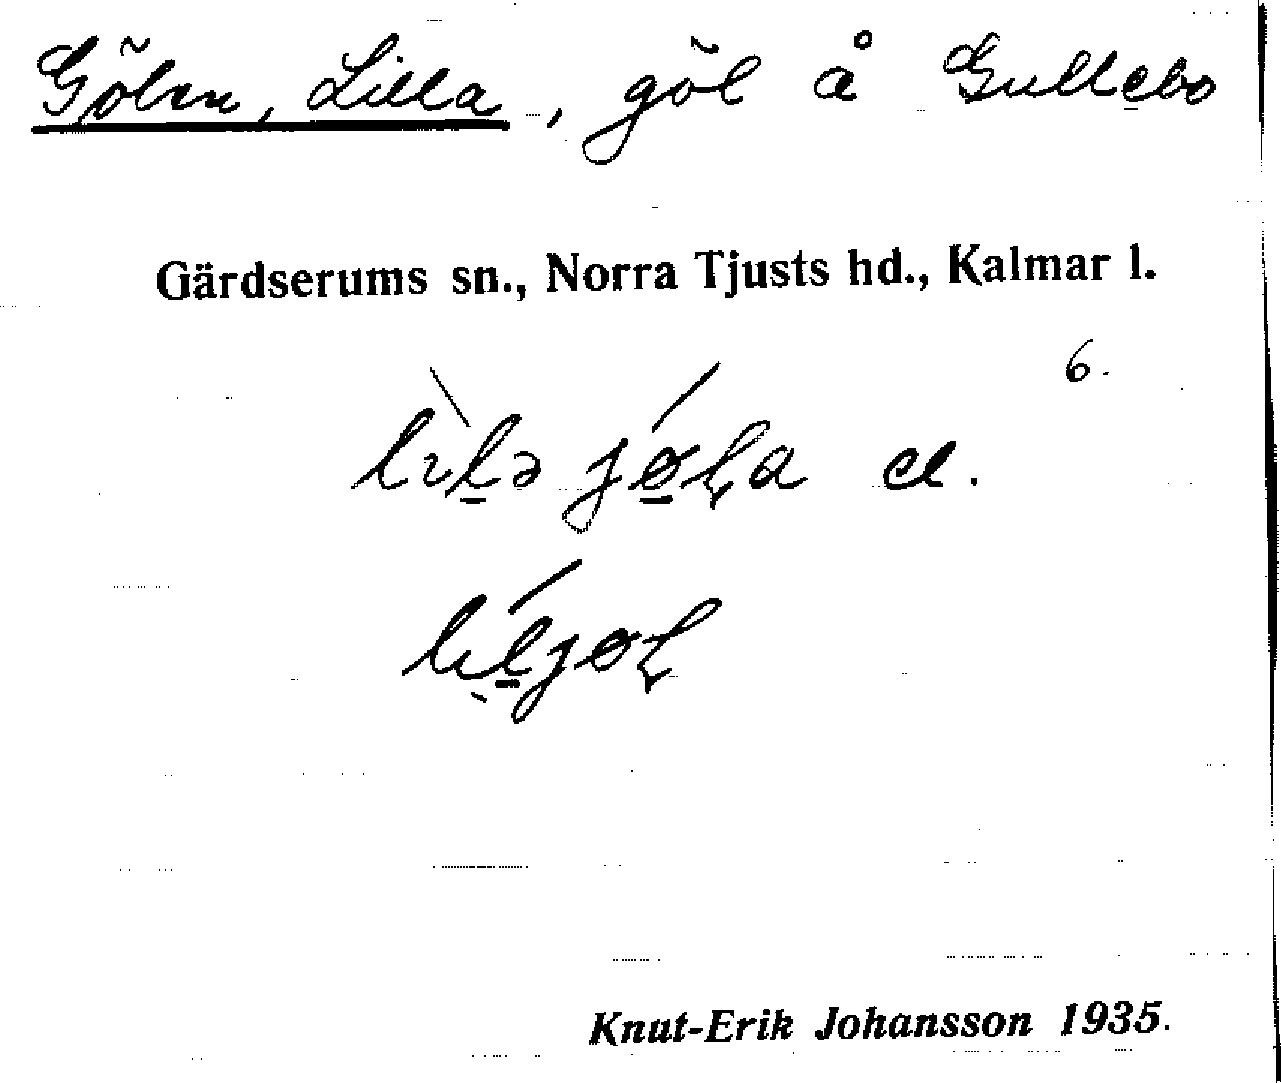 Gölen, Lilla, göl å Gullebo
Gärdserums sn., Norra Tjusts hd., Kalmar l.
6.
lìlə jǿla el.
líljøl
Knut-Erik Johansson 1935.